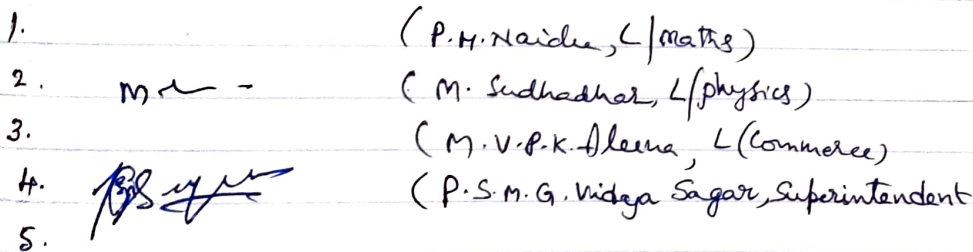 1. (P.H.Naidu, L/maths)
2. (M. Sudhadhar, L/physics)
3. (M.V.P.K. L(Commerce)
4. (P.S.M.G. Vidya Sagar, Superintendent
5.